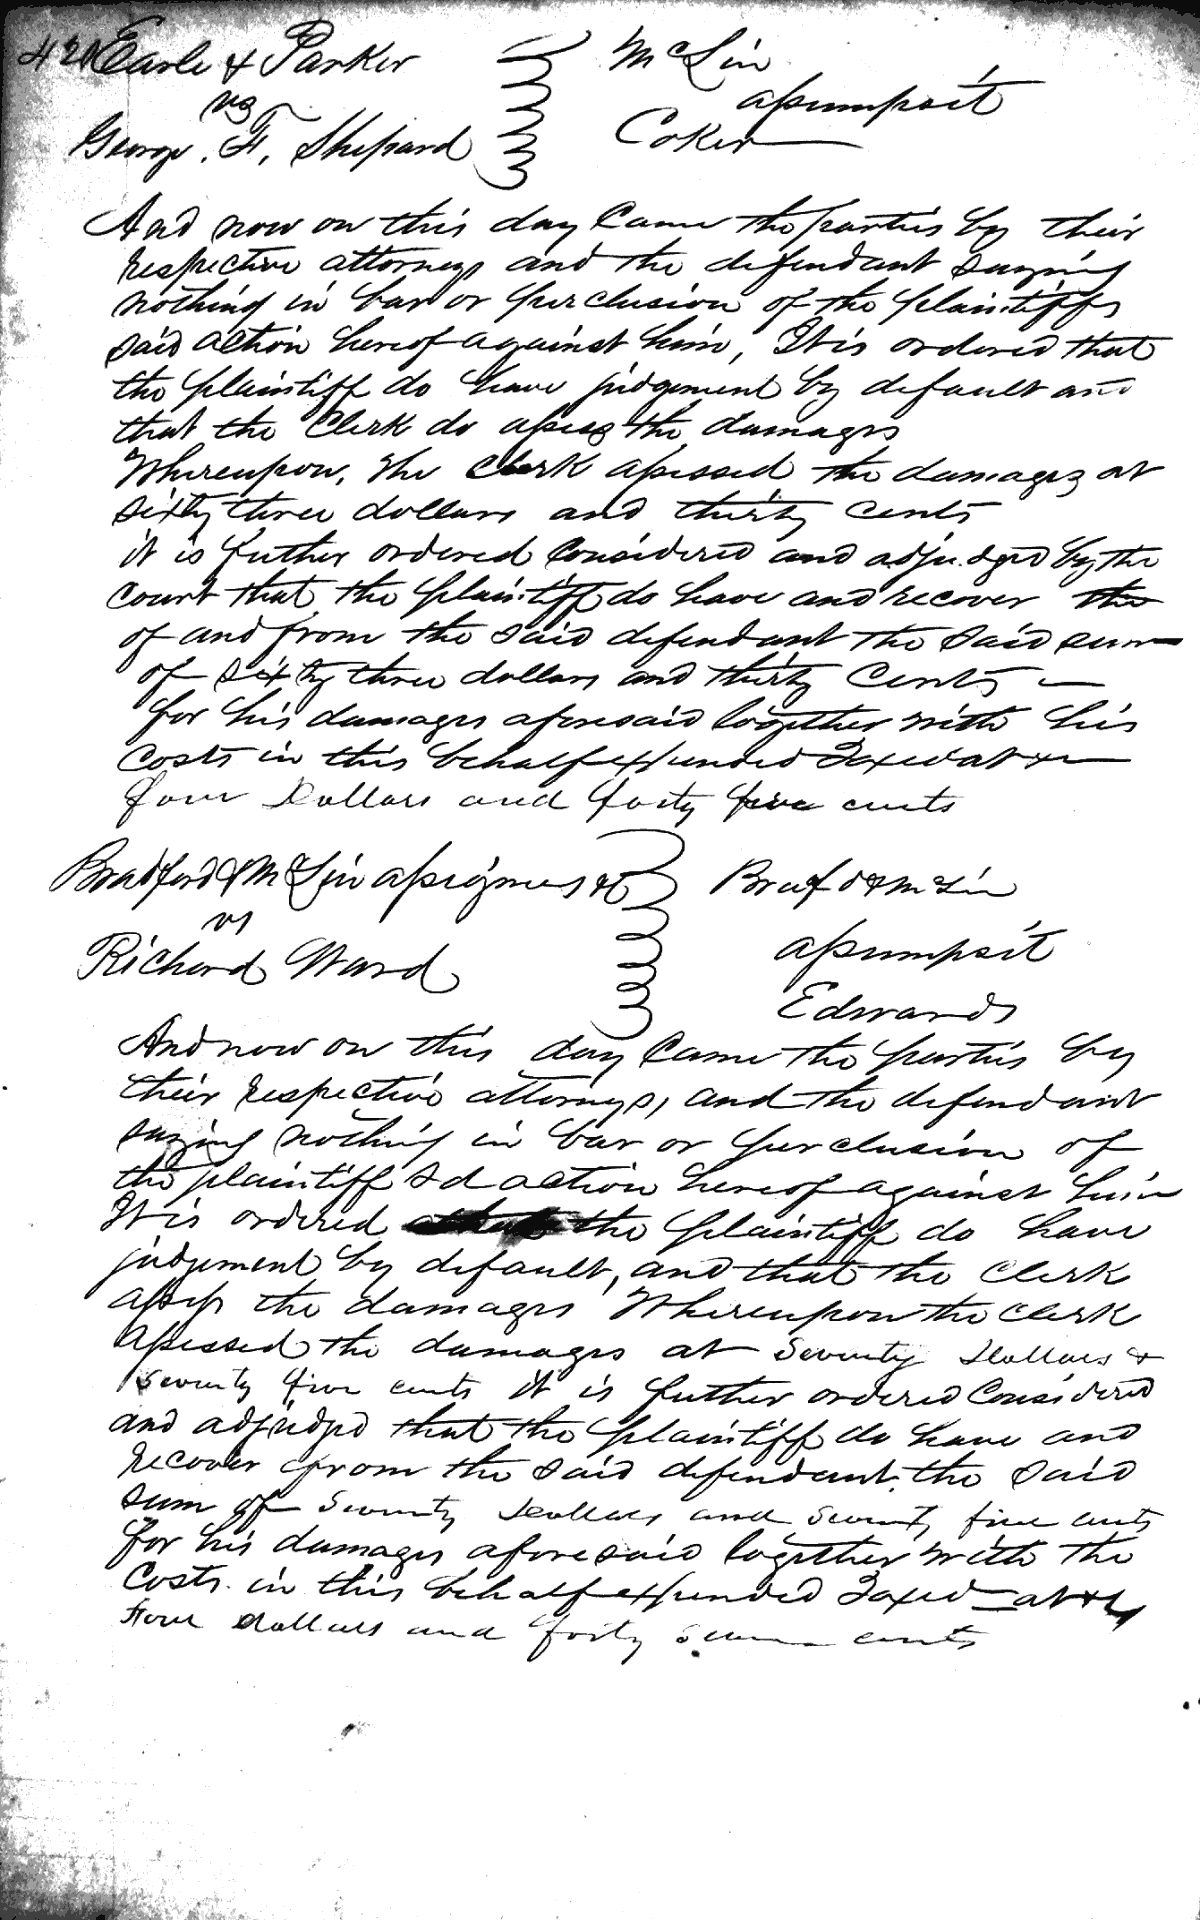 420 Earle & Parker McLin
vs assumpsit
George. F. Shepard Coker
And now on this day Came the parties by their
respective attorneys and the defendant saying
nothing in bar or purclusion of the plaintiffs
said action hereof against him, It is ordered that
the plaintiff do have judgement by default and
that the Clerk do assess the damages
Whereupon, the Clerk assessed the damages at
sixty three dollars and thirty cents
it is futher ordered Considered and adjudged by the
Court that the plaintiff do have and recover the
of and from the said defendant the said sum
of sixty three dollars and thirty Cents
for his damages aforesaid together with his
Costs in this behalf expended Taxed at
four Dollars and forty five cents
Bradford & McLin assignees &c Bradford & McLin
vs assumpsit
Richard Ward Edwards
And now on this day Came the parties by
their respective attorneys, and the defendant
saying nothing in bar or purclusion of
the plaintiff sd action hereof against him
It is ordered the plaintiff do have
judgement by default, and that the Clerk
assess the damages Whereupon the Clerk
assessed the damages at Seventy Dollars &
Seventy five cents it is futher ordered Considered
and adjudged that the plaintiff do have and
recover from the said defendant. the said
sum of Seventy Dollars and Seventy five cents
for his damages aforesaid together with the
Costs. in this behalf expended Taxed at
Four dollars and forty seven cents